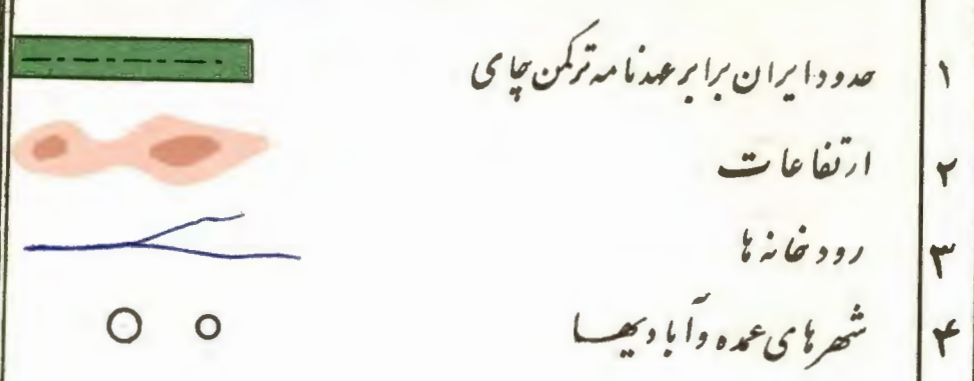 ۱ حدود ایران برابر عهدنامه ترکمن چای
۲ ارتفاعات
۳ رودخانه ها
۴ شهرهای عمده و آبادیها